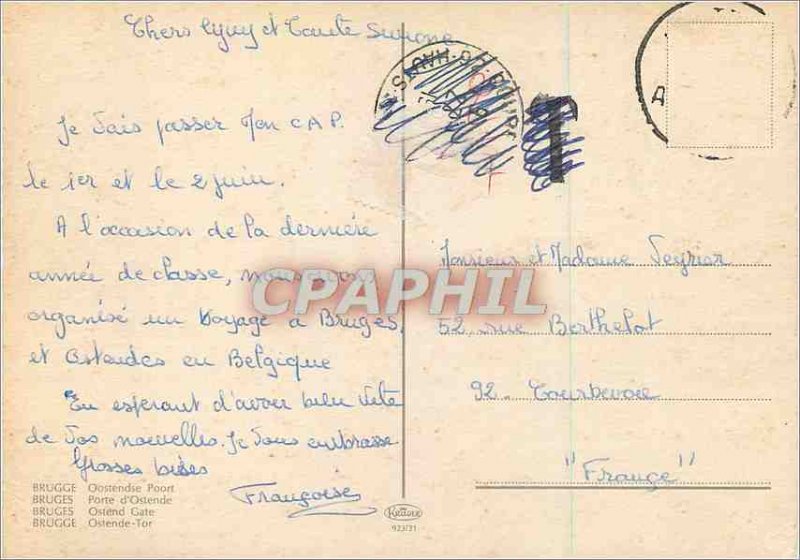 Chers et Tante Simone
Je vais passer mon C.A.P.
le 1er et le 2 juin.
A l'occasion de la dernière
année de classe, nous avons
organisé un voyage à Bruges,
et Ostendes en Belgique
En esperant d'avoir bien vite
de vos nouvelles. Je vous embrasse
Grosses bises
Françoise
BRUGGE Oostendse Poort
BRUGES Porte d'Ostende
BRUGES Ostend Gate
BRUGGE Ostende-Tor
Monsieur et Madame Peyrior
52 rue Berthelot
92. Courbevoie
"France"
CPAPHIL
Krüger
923/31
T